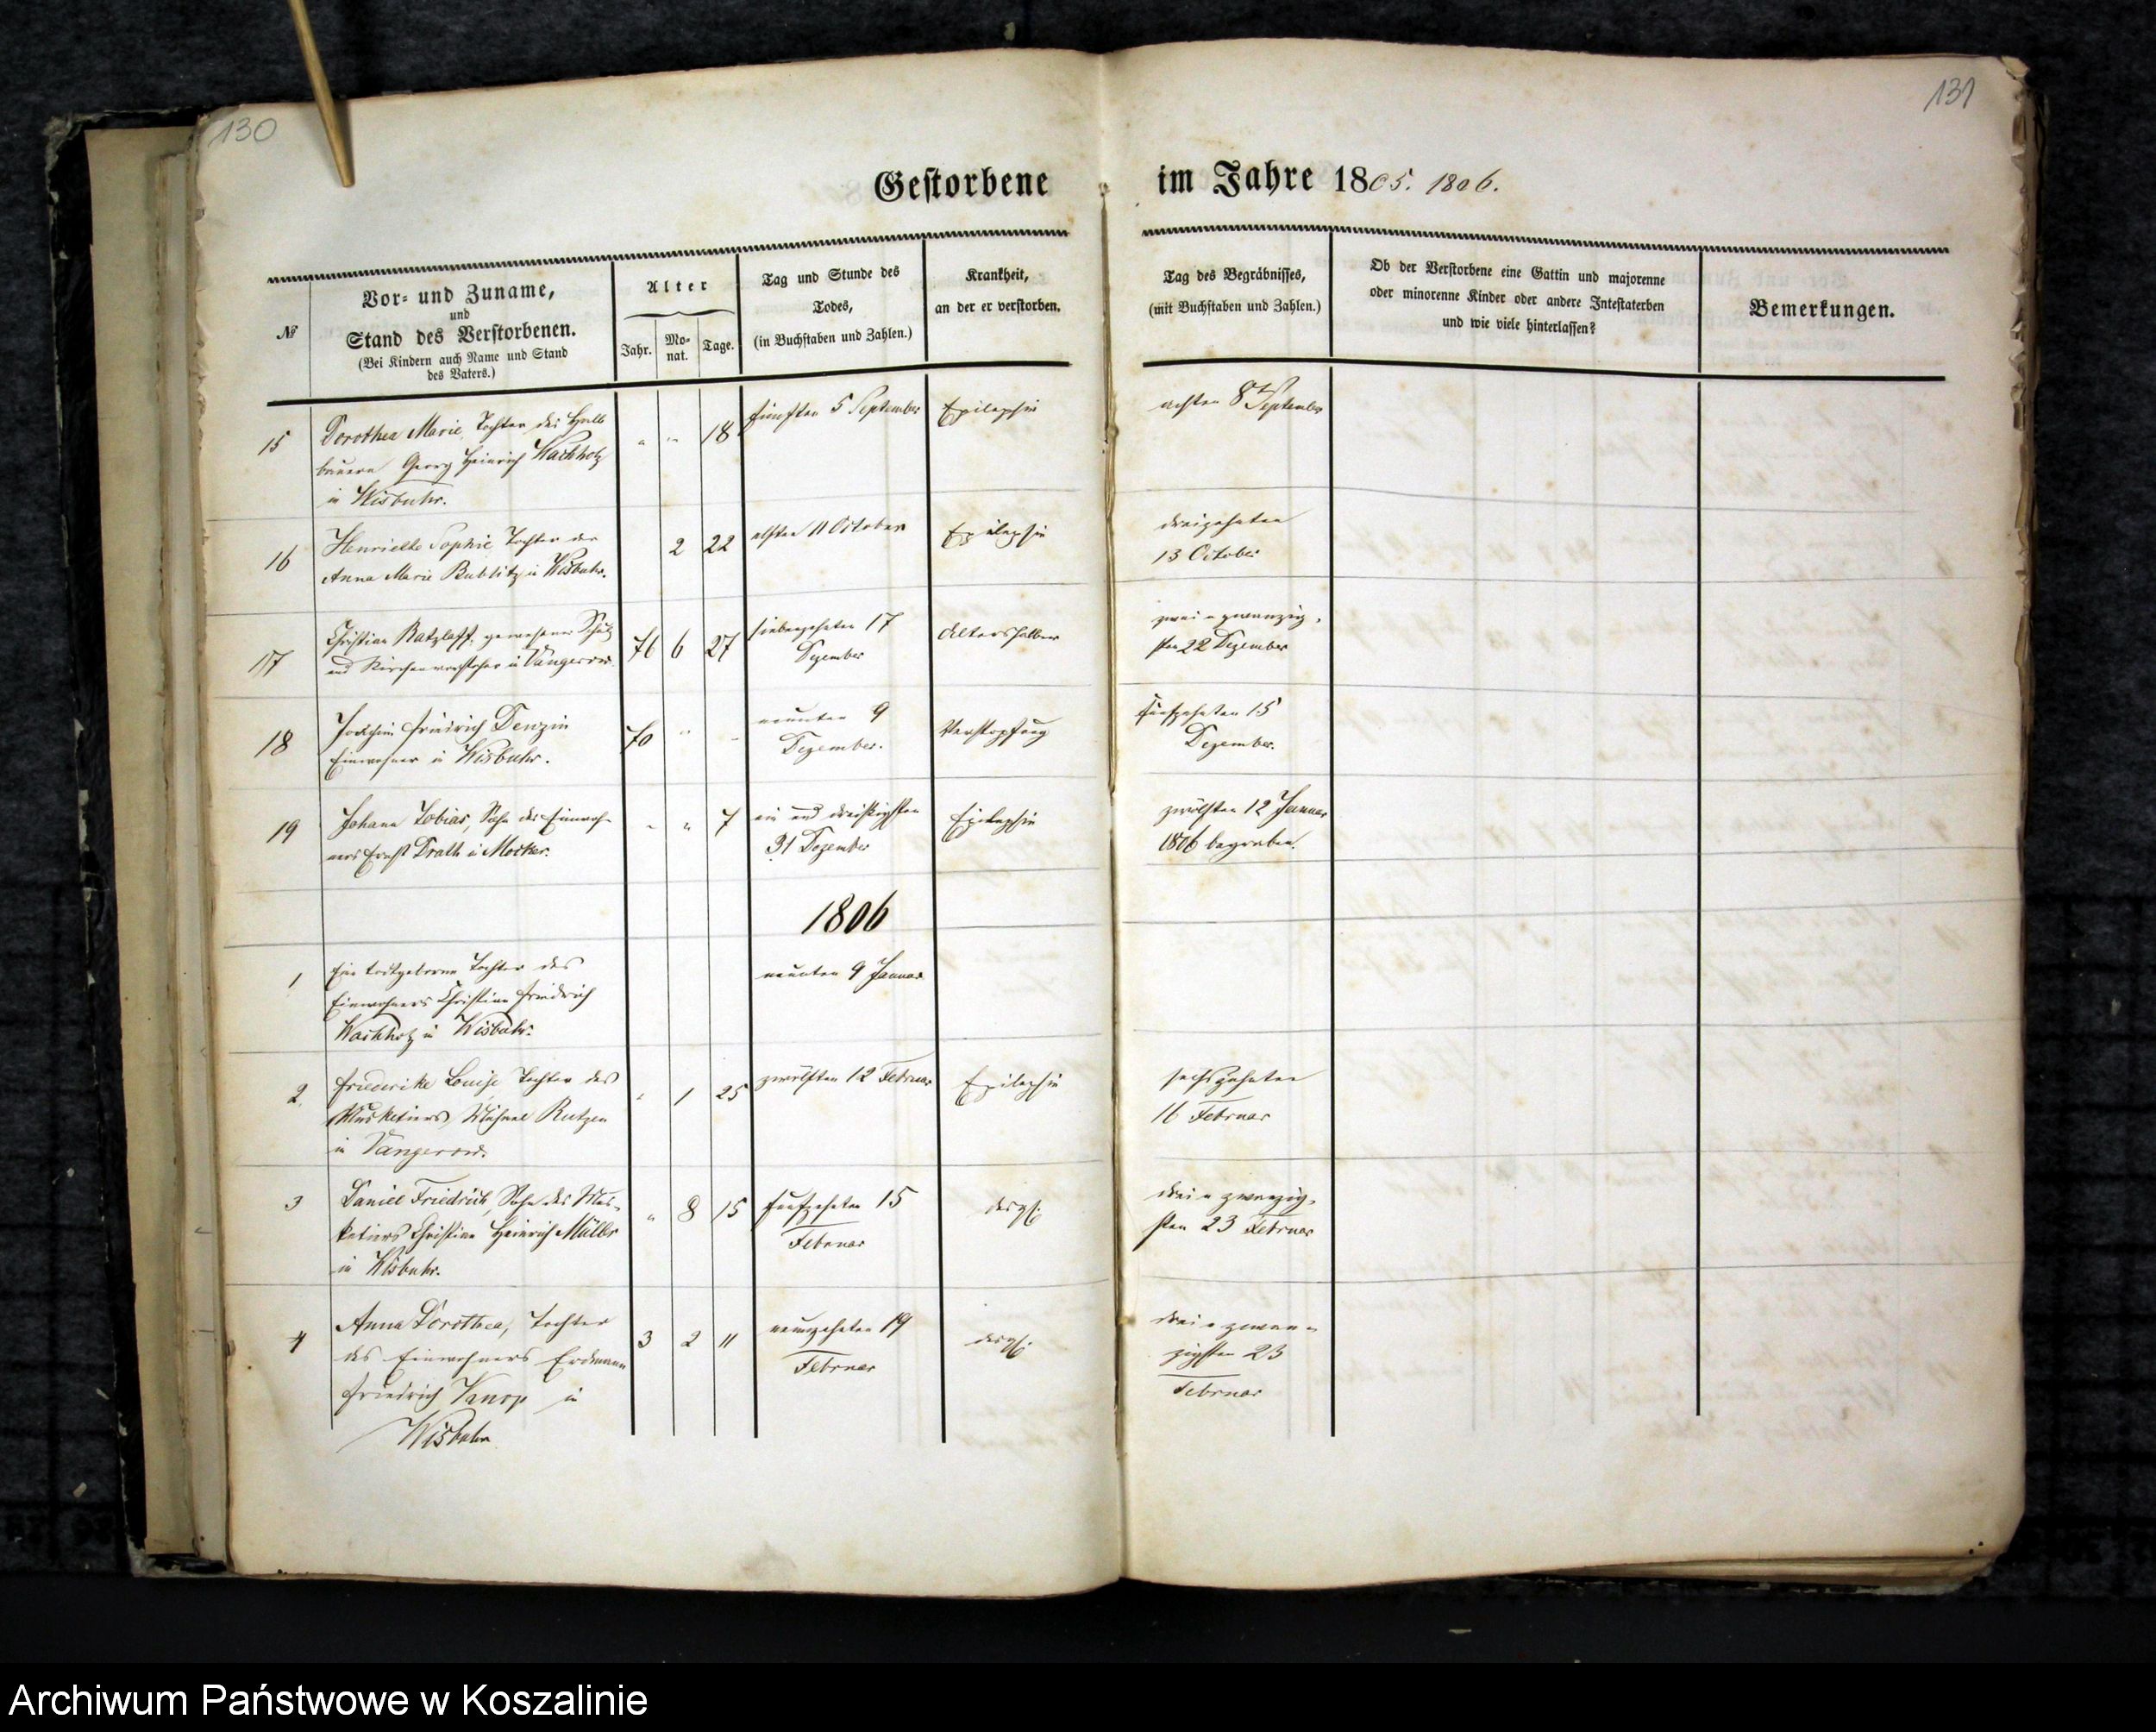 130
131
Gestorbene im Jahre 1805. 1806.
№
Vor- und Zuname,
und
Stand des Verstorbenen.
(Bei Kindern auch Name und Stand
des Vaters.)
Alter
Jahr.
Mo-
nat.
Tage.
Tag und Stunde des
Todes,
(in Buchstaben und Zahlen.)
Krankheit,
an der er verstorben.
Tag des Begräbnisses,
(mit Buchstaben und Zahlen.)
Ob der Verstorbene eine Gattin und majorenne
oder minorenne Kinder oder andere Intestaterben
und wie viele hinterlassen?
Bemerkungen.
15
Dorothea Marie, Tochter des Halb
bauern Georg Heinrich Wachholz
in Wisbuhr.
" " 18
fünften 5 September
Epilepsie
achten 8 September
16
Henriette Sophie Tochter der
Anna Marie Bublitz in Wisbuhr.
2 22
elften 11 October
Epilepsie
dreizehnten
13 October
17
Christian Ratzlaff, gewesener Schulz
und Kirchenvorsteher in Vangerow.
76 6 27
siebenzehnten 17
Dezember
Altershalber
zwei u zwanzig-
sten 22 Dezember
18
Joachim Friedrich Denzin
Einwohner in Wisbuhr.
70 " -
neunten 9
Dezember.
Verstopfung
fünfzehnten 15
Dezember.
19
Johann Tobias, Sohn des Einwoh-
ners Ernst Drath in Mocker.
" " 7
ein und dreißigsten
31 Dezember
Epilepsie
zwölften 12 Januar
1806 begraben.
1806
1
Eine todtgeborne Tochter des
Einwohners Christian Friedrich
Wachholz in Wisbuhr.
neunten 9 Januar
2.
Friederike Louise Tochter des
Musketiers Michael Rutzen
in Vangerow.
" 1 25
zwölften 12 Februar
Epilepsie
sechszehnten
16 Februar
3
Daniel Friedrich, Sohn des Mus-
ketiers Christian Heinrich Müller
in Wisbuhr.
" 8 15
funfzehnten 15
Februar
desgl.
drei u zwanzig-
sten 23 Februar
4
Anna Dorothea, Tochter
des Einwohners Erdmann
Friedrich Knop in
Wisbuhr
3 2 11
neunzehnten 19
Februar
desgl.
drei u zwan-
zigsten 23
Februar
Archiwum Państwowe w Koszalinie